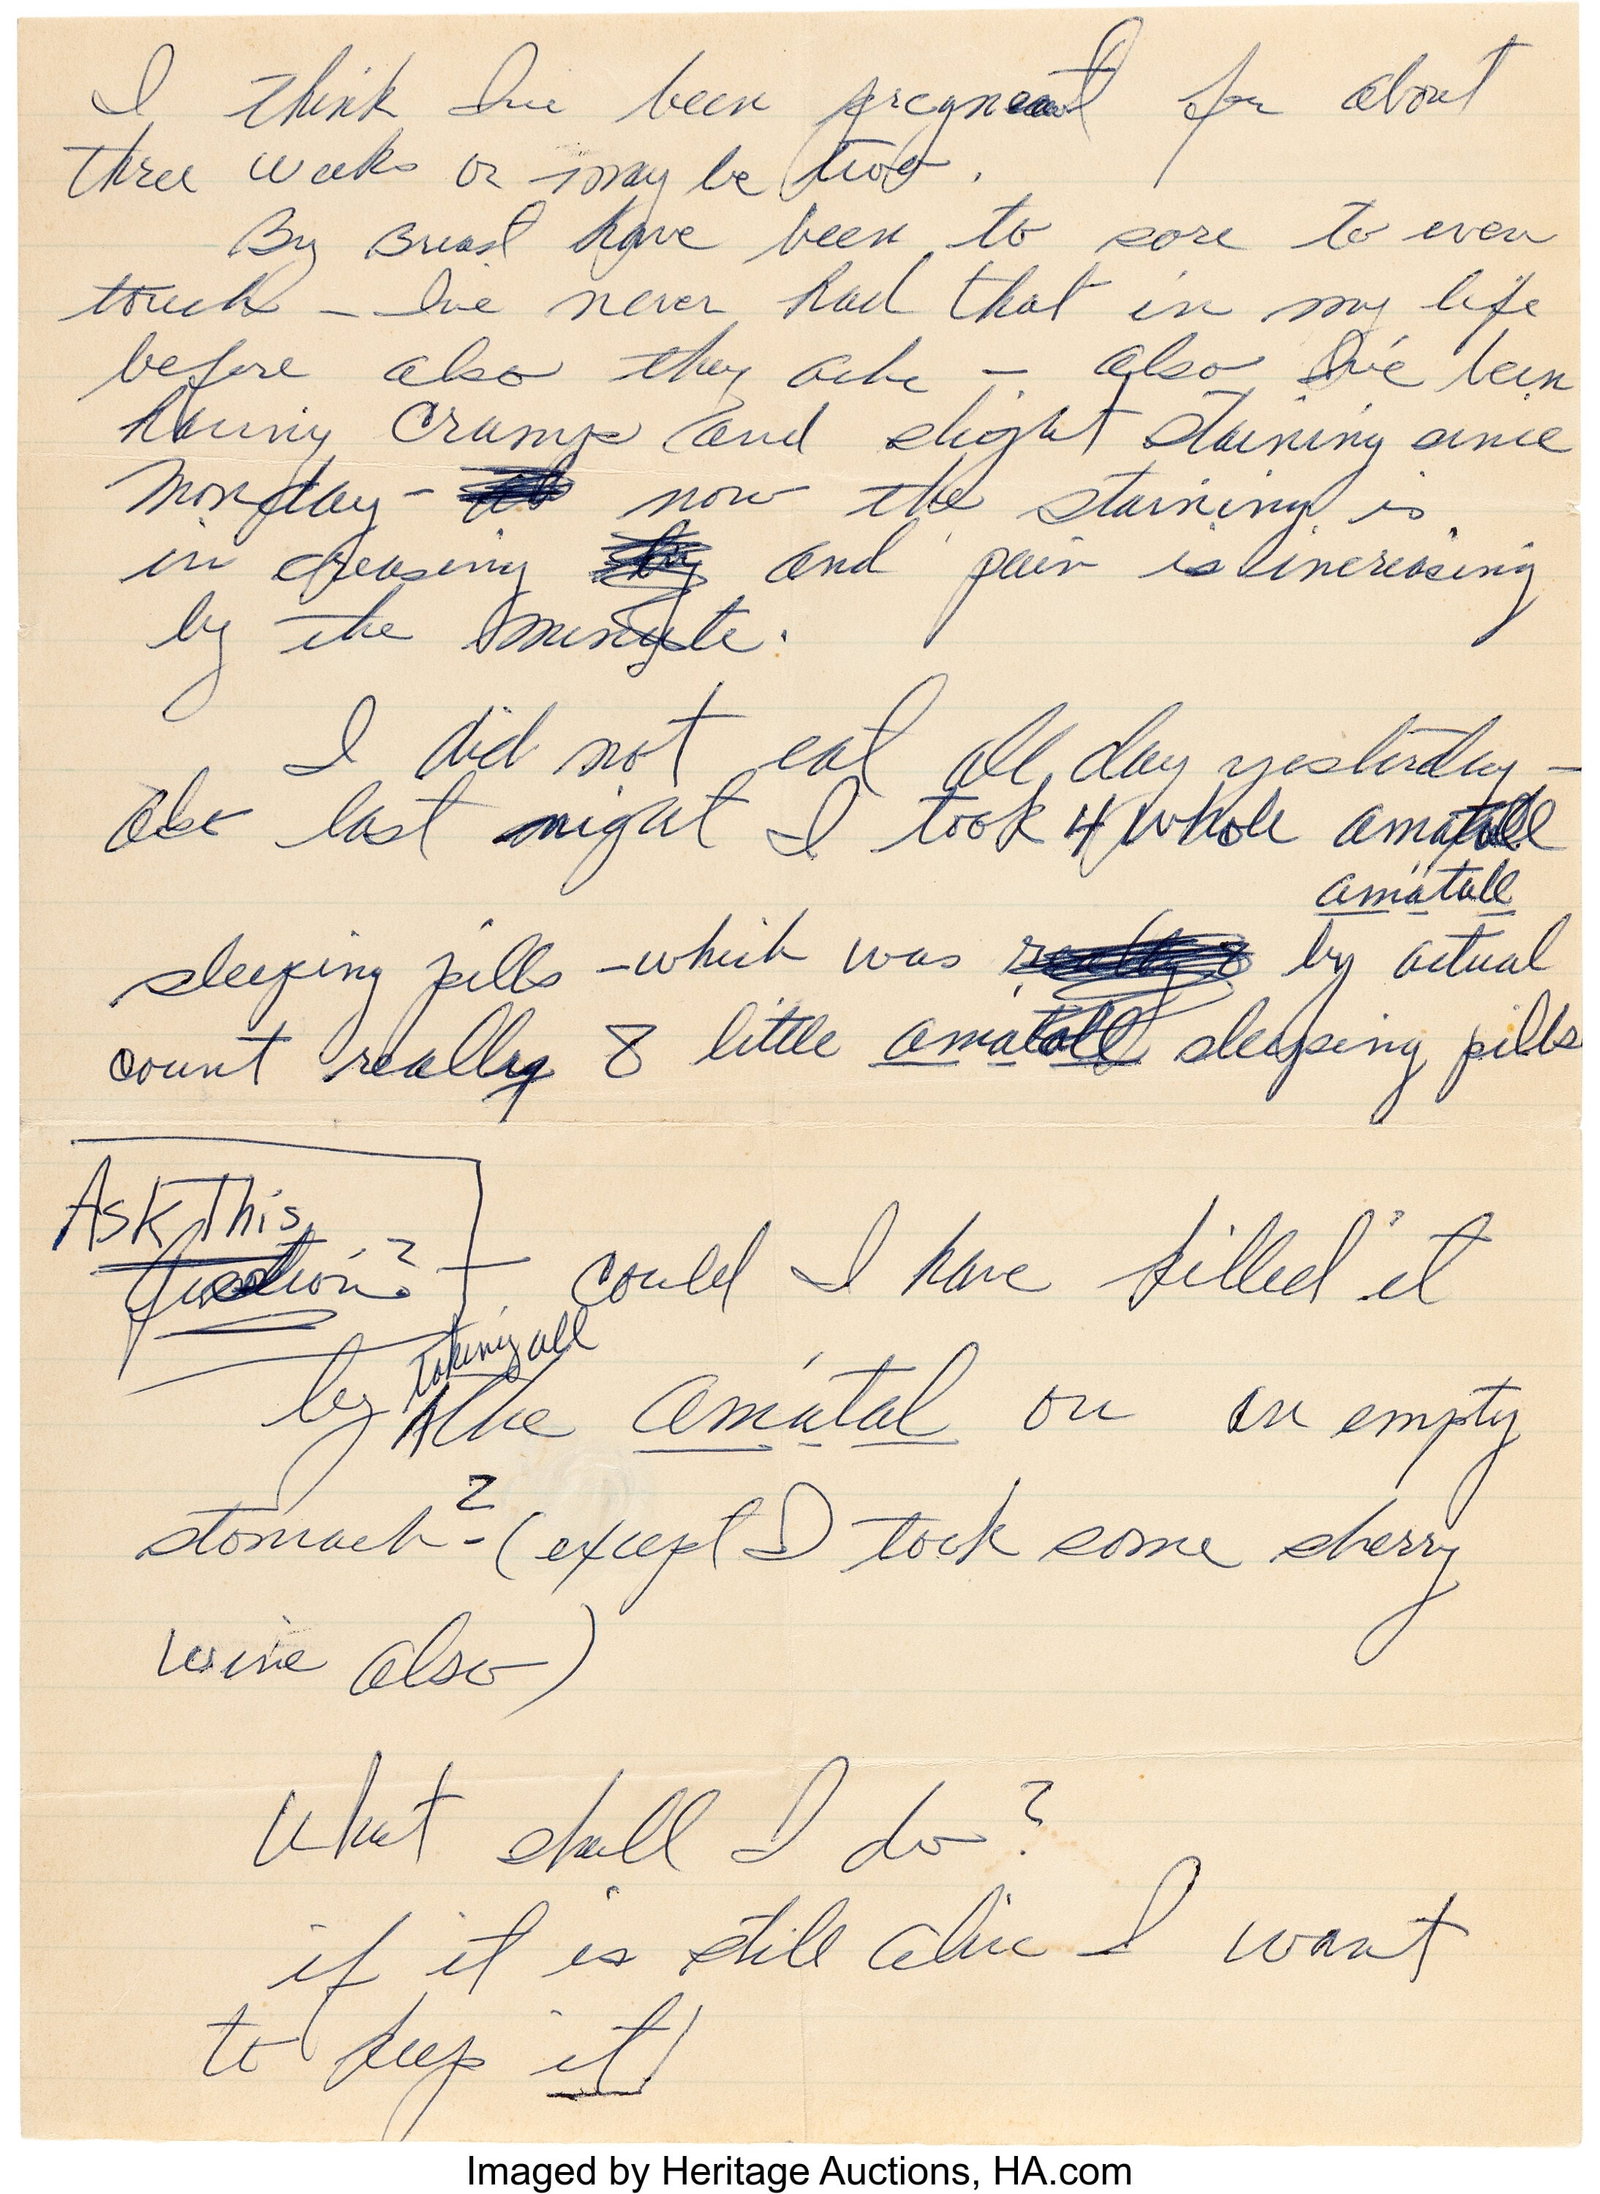 I think I've been pregneant for about
three weeks or may be two.
By Breast have been to sore to even
touch - I've never had that in my life
before also they ache - also I've been
having cramps and slight staining since
Monday - now the staining is
in creasing and pain is increasing
by the minute.
I did not eat all day yesterday -
also last night I took 4 whole amatall
amatall
sleeping pills - which was by actual
count really 8 little amatall sleeping pills
Ask This
Question? - could I have killed it
taking all
by the amatal on an empty
stomach? - (except I took some sherry
wine also)
What shall I do?
if it is still alive I want
to keep it!
Imaged by Heritage Auctions, HA.com